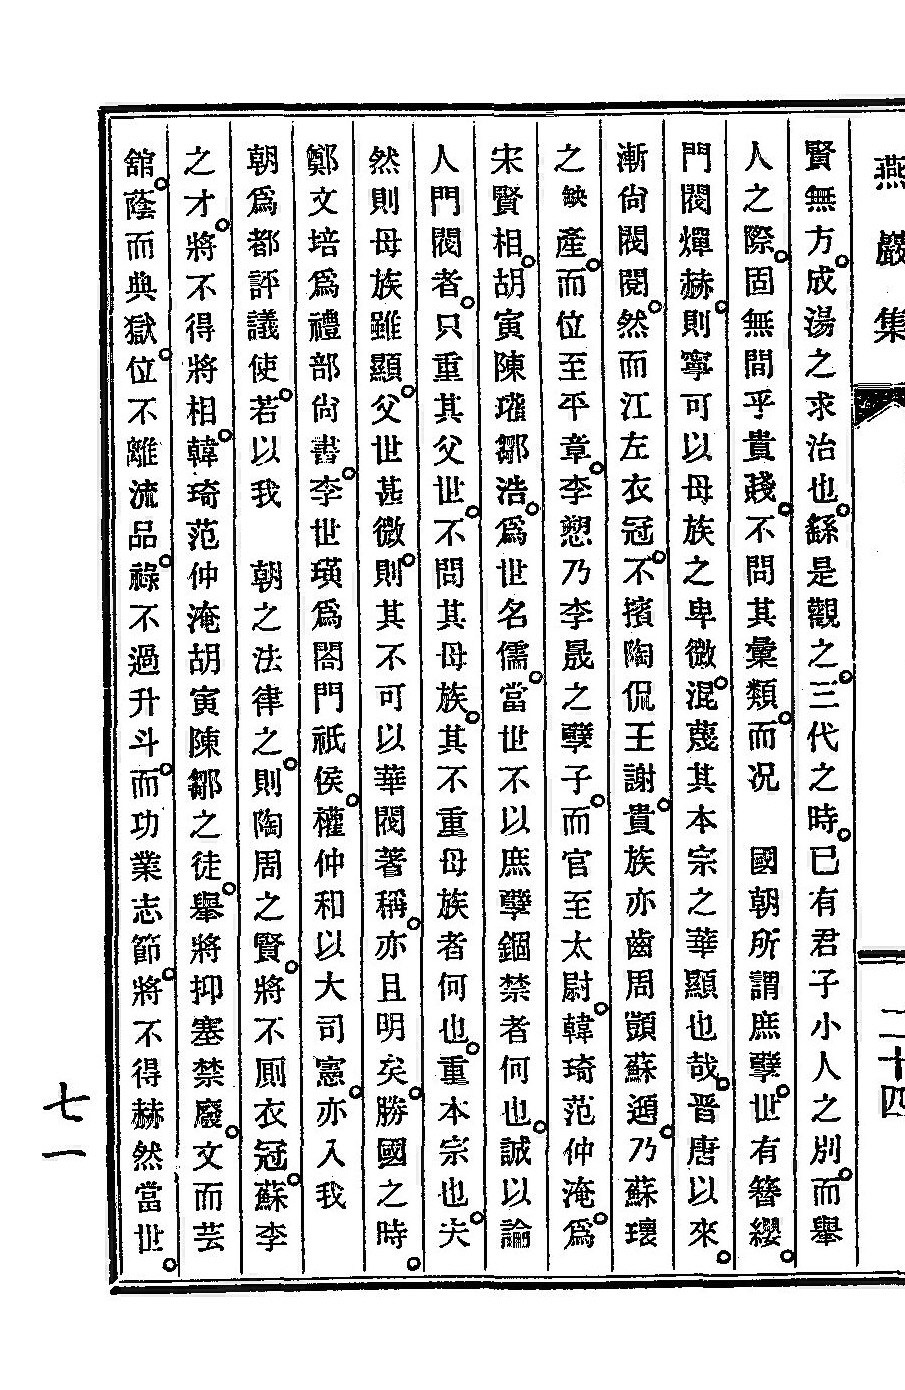 燕巖集
二十四
賢無方。成湯之求治也。繇是觀之。三代之時。已有君子小人之別。而舉
人之際。固無間乎貴賤。不問其彙類。而况　國朝所謂庶孼。世有簪纓。
門閥燀赫。則寧可以母族之卑微。混蔑其本宗之華顯也哉。晋唐以來。
漸尙閥閱。然而江左衣冠。不擯陶侃。王謝貴族。亦齒周顗。蘇頲。乃蘇瓌
之缺產。而位至平章。李愬乃李晟之孼子。而官至太尉。韓琦范仲淹。爲
宋賢相。胡寅陳瓘鄒浩。爲世名儒。當世不以庶孼錮禁者何也。誠以論
人門閥者。只重其父世。不問其母族。其不重母族者何也。重本宗也。夫
然則母族雖顯。父世甚微。則其不可以華閥著稱。亦且明矣。勝國之時。
鄭文培爲禮部尙書。李世璜爲閤門祇侯。權仲和以大司憲。亦入我
朝爲都評議使。若以我　朝之法律之。則陶周之賢。將不厠衣冠。蘇李
之才。將不得將相。韓琦范仲淹胡寅陳鄒之徒。舉將抑塞禁廢。文而芸
舘。蔭而典獄。位不離流品。祿不過升斗。而功業志節。將不得赫然當世。
七一